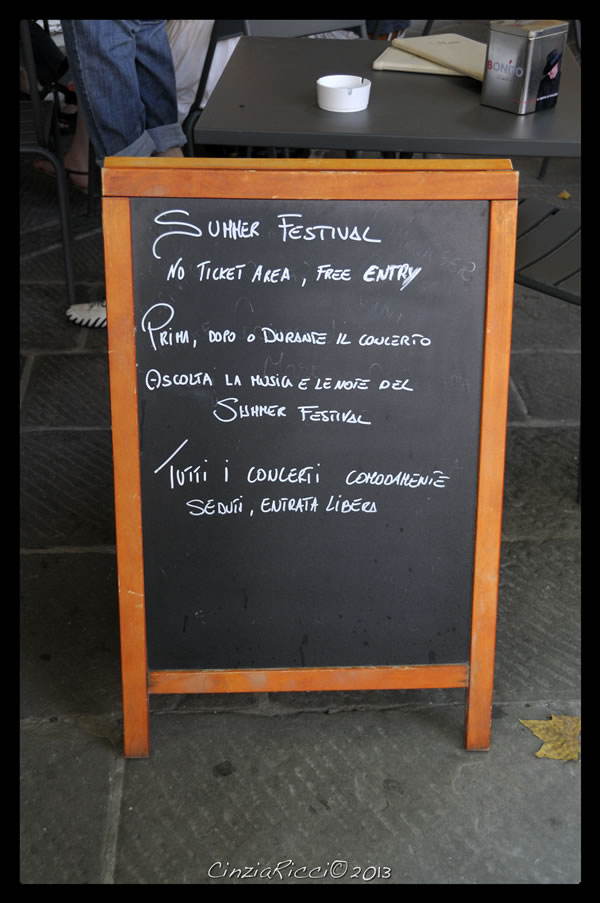 BONITO
SUMMER FESTIVAL
NO TICKET AREA, FREE ENTRY
PRIMA, DOPO O DURANTE IL CONCERTO
ASCOLTA LA MUSICA E LE NOTE DEL
SUMMER FESTIVAL
TUTTI I CONCERTI COMODAMENTE
SEDUTI, ENTRATA LIBERA
CinziaRicci© 2013